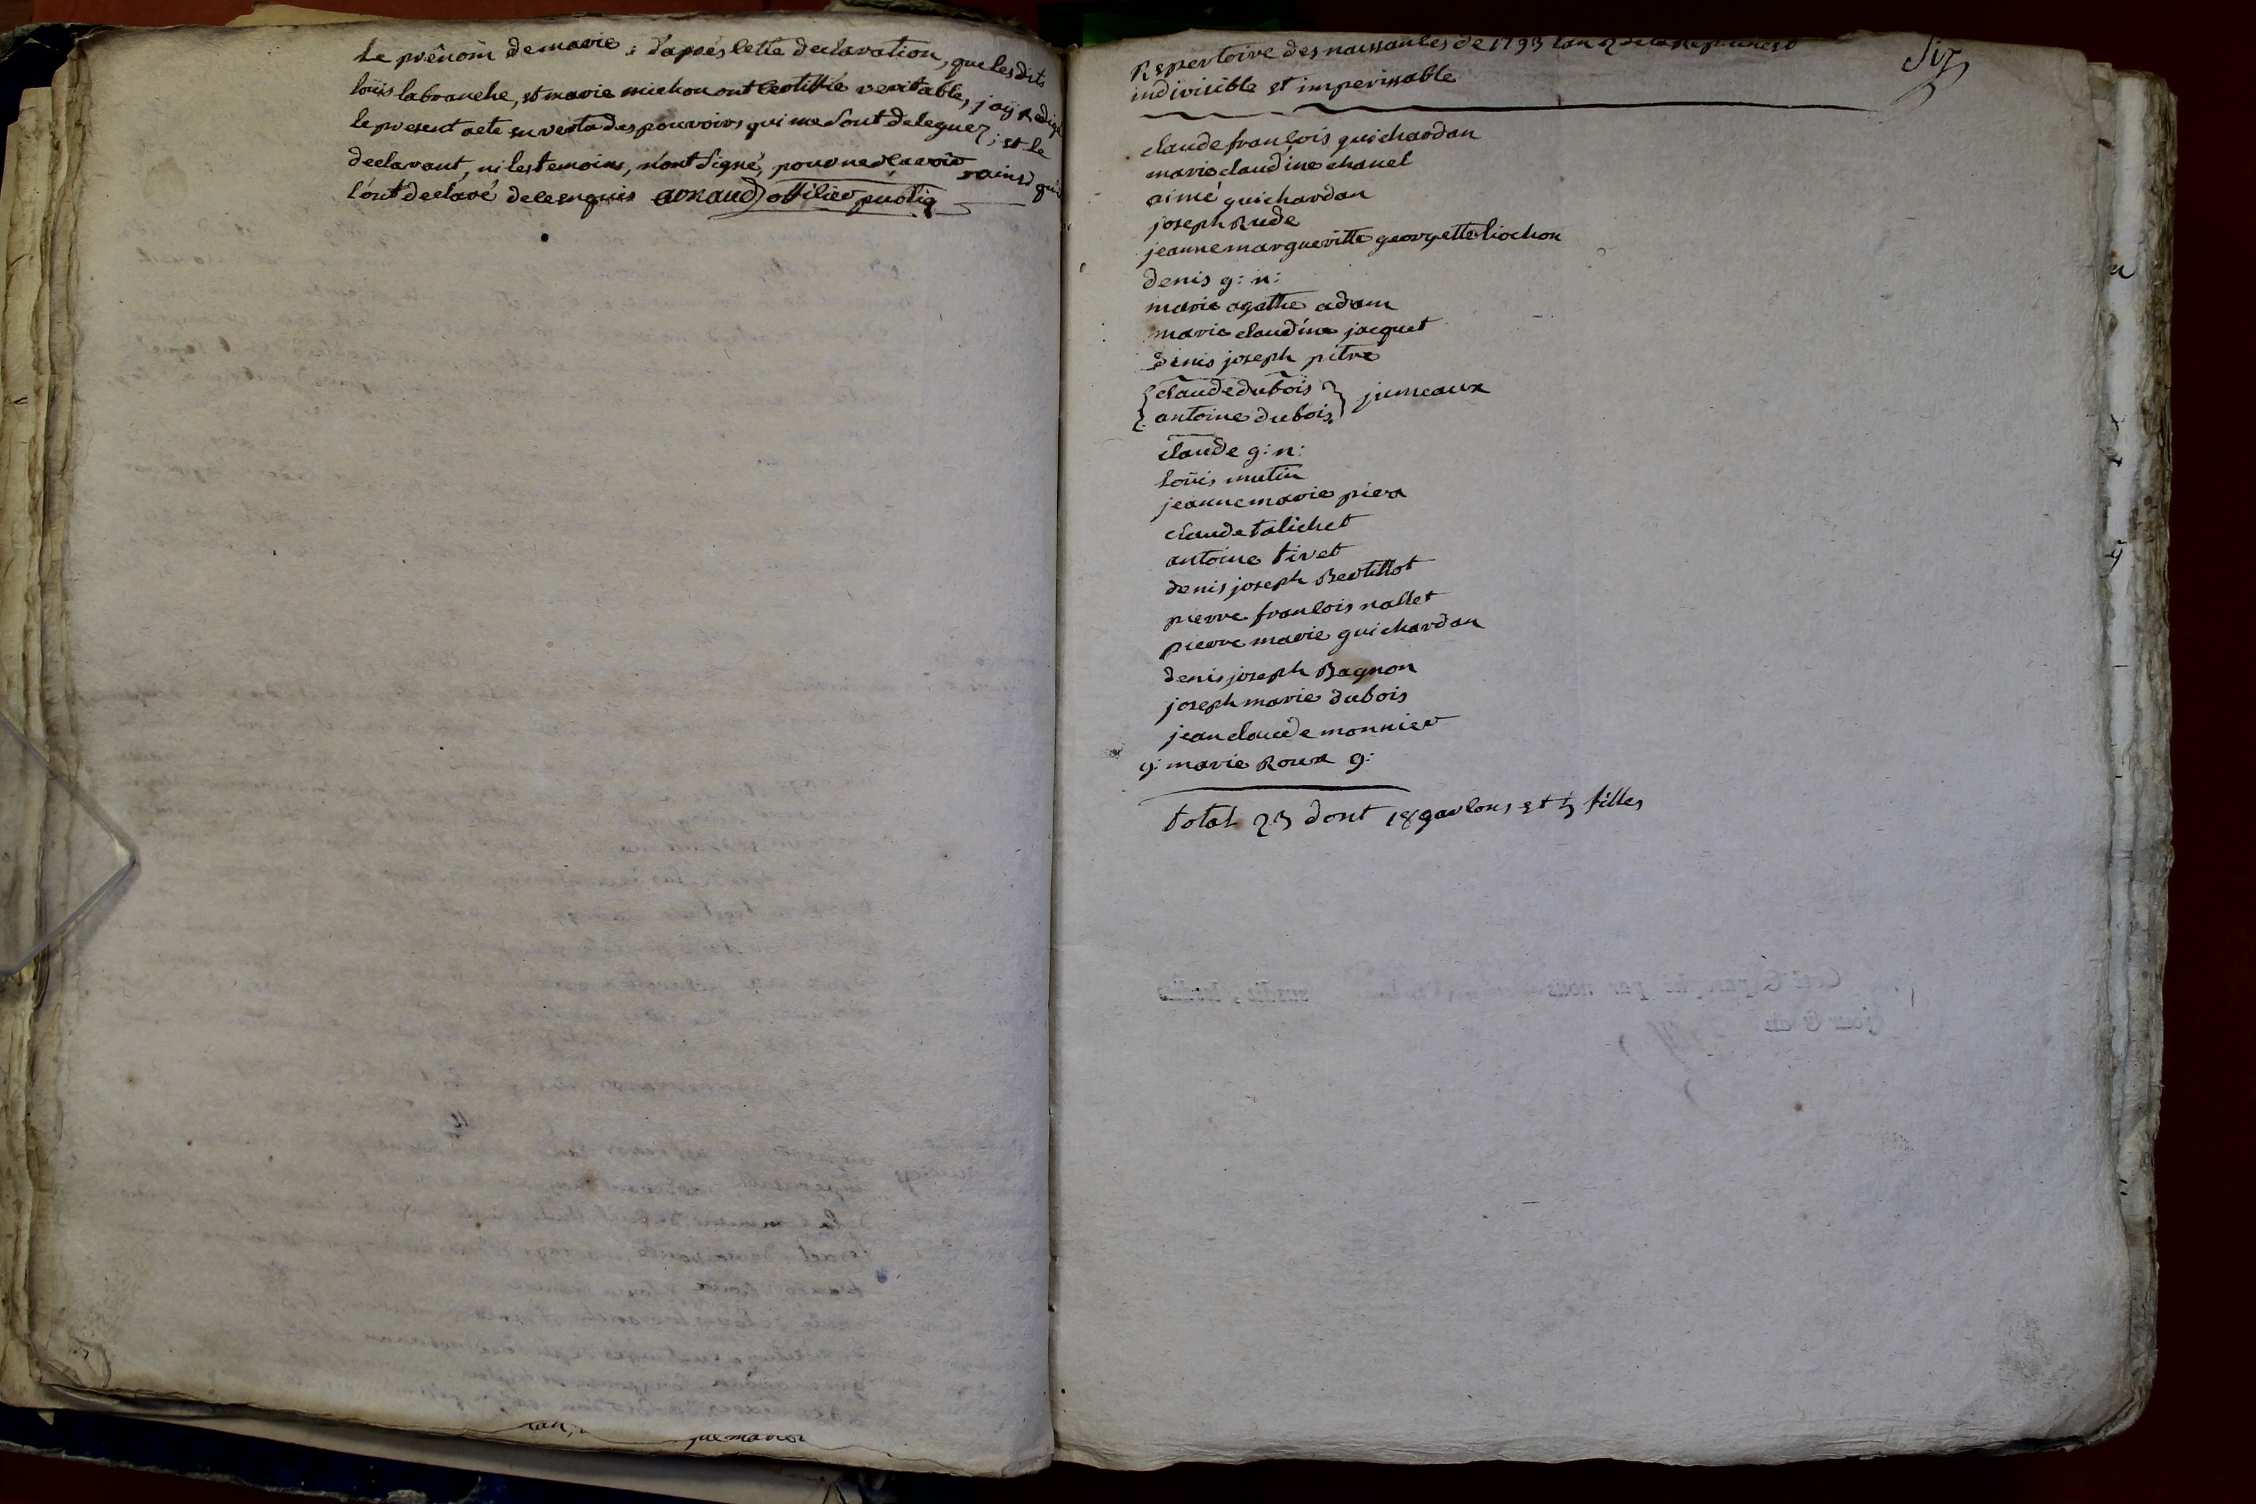 le prénom de marie : d'aprés cette declaration, que les dits
loüis labranche, et marie michon ont certiffié veritable, j'aÿ Redigé
le present acte en vertu des pouvoirs qui me sont deleguez ; et le
declarant, ni les temoins, n'ont signé, pour ne sçavoir, ainsi qu'ils
l'ont declaré de ce enquis arnaud officier public
Repertoire des naissances de 1793 l'an 2 de la Republique
indivisible et imperissable
Six
claude françois guichardan
marie claudine chanel
aimé guichardan
joseph Rude
jeanne margueritte georgette liochon
denis g: n:
marie agathe adam
marie claudine jacquet
denis joseph pitre
claude dubois
antoine dubois
jumeaux
claude g: n:
loüis mutin
jeanne marie piera
claude talichet
antoine tivet
denis joseph Bertillot
pierre françois nallet
pierre marie guichardan
denis joseph Bagnon
joseph marie dubois
jean claude monnier
g: marie Roux g:
total 23 dont 18 garcons et 5 filles